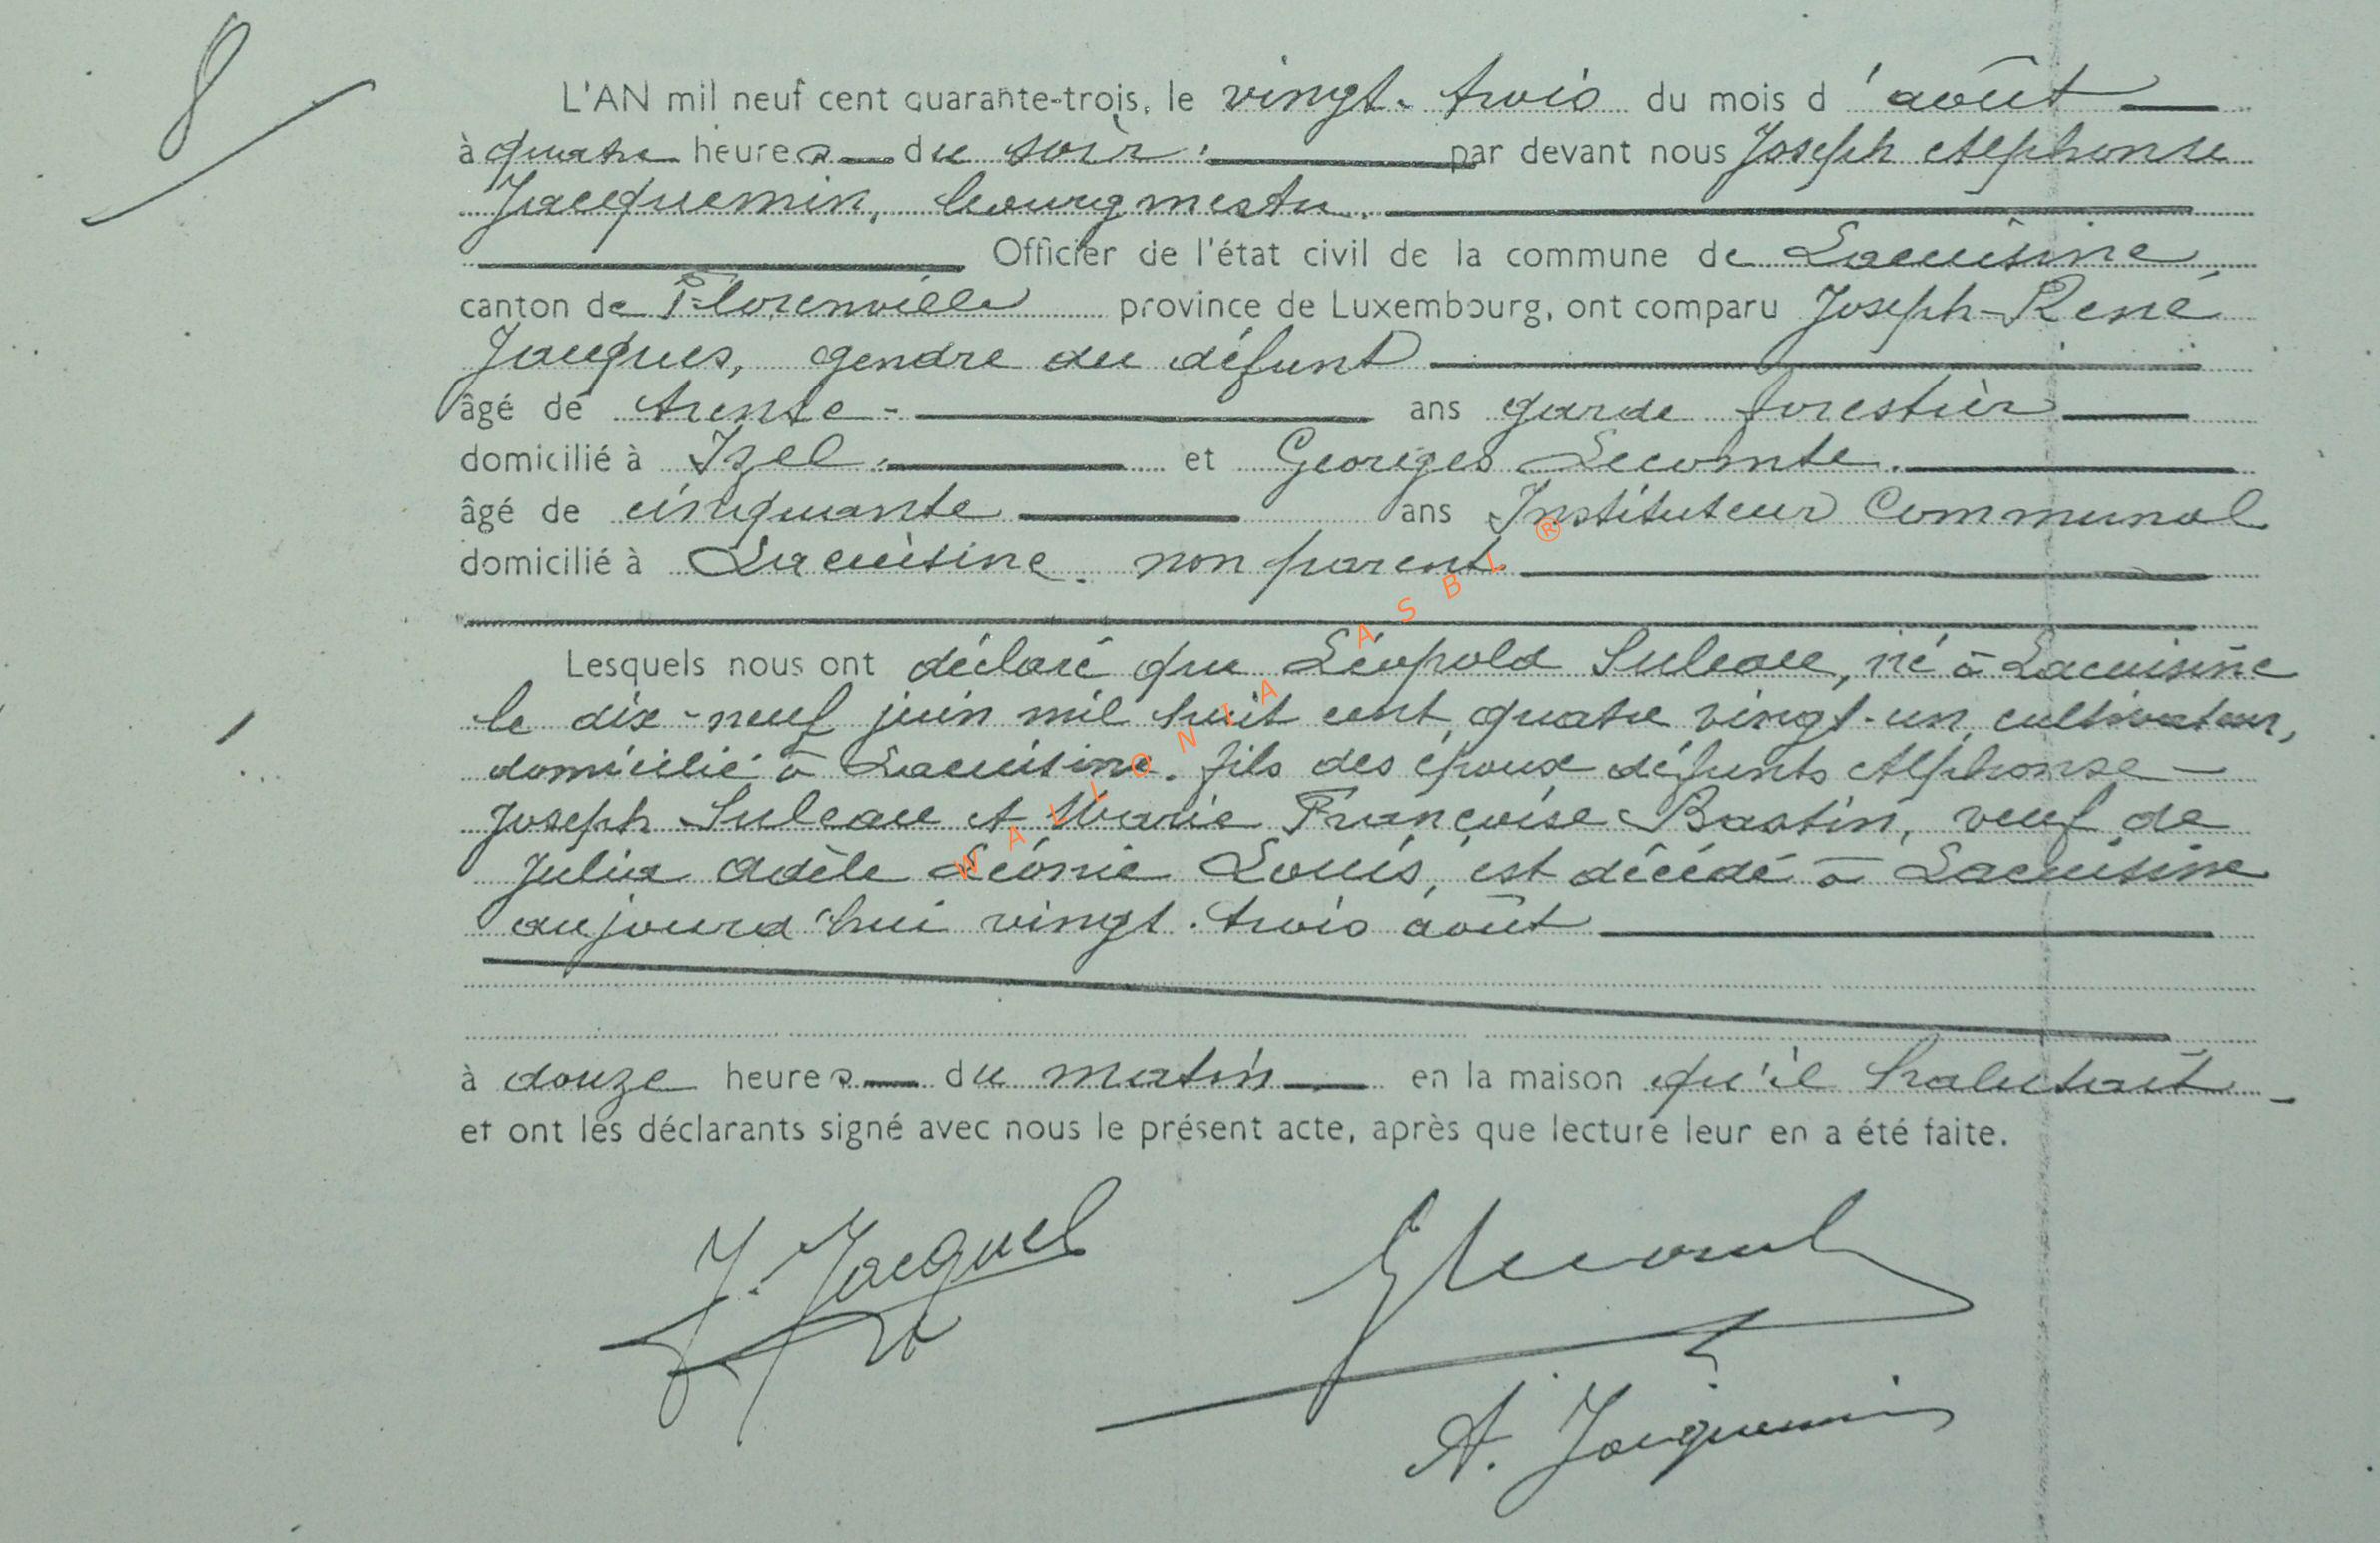 8
L'AN mil neuf cent quarante-trois, le vingt-trois du mois d'août
à quatre heures du soir. par devant nous Joseph Alphonse
Jacquemin, bourgmestre.
Officier de l'état civil de la commune de Lacuisine,
canton de Florenville province de Luxembourg, ont comparu Joseph-René
Jacques, gendre du défunt
âgé de trente- ans garde forestier
domicilié à Izel. et Georges Lecomte.
âgé de cinquante ans Instituteur Communal
domicilié à Lacuisine. non parent.
Lesquels nous ont déclaré que Léopold Suleau, né à Lacuisine
le dix-neuf juin mil huit cent quatre vingt-un, cultivateur,
domicilié à Lacuisine. fils des époux défunts Alphonse
Joseph Suleau et Marie Françoise Bastin, veuf de
Julia Adèle Léonie Louis, est décédé à Lacuisine
aujourd'hui vingt-trois août
à douze heures du matin en la maison qu'il habitait
et ont les déclarants signé avec nous le présent acte, après que lecture leur en a été faite.
J. Jacques
GLecomte
A. Jacquemin
WALLONIA ASBL ®